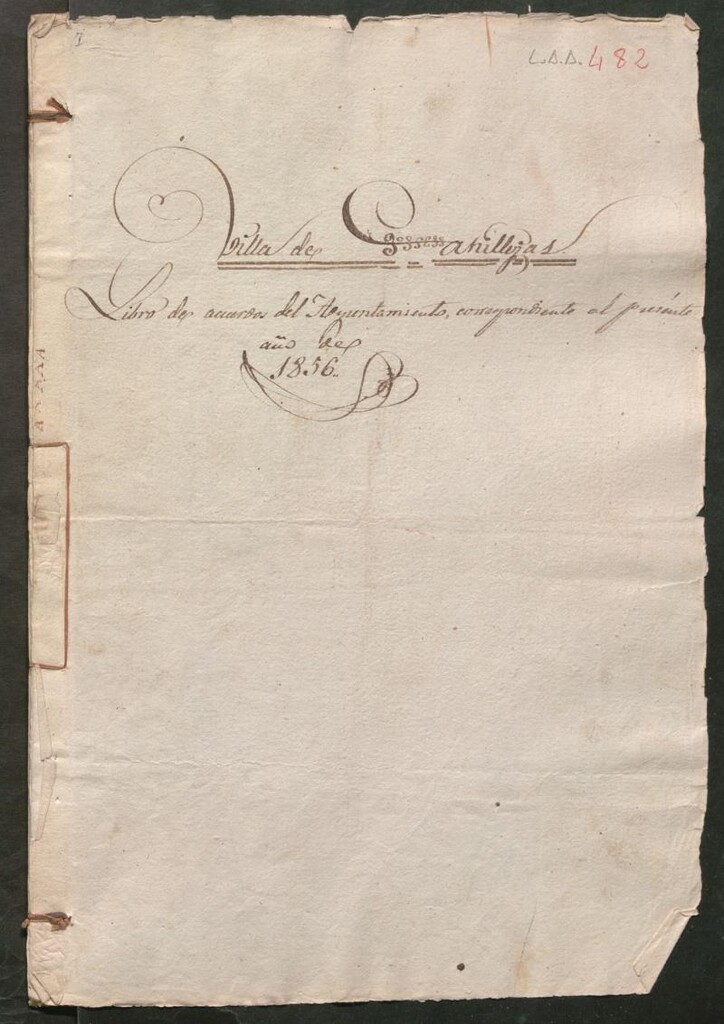 L.A.A. 482
Villa de Canillejas
Libro de acuerdos del Ayuntamiento, correspondiente al presente
año de
1856.